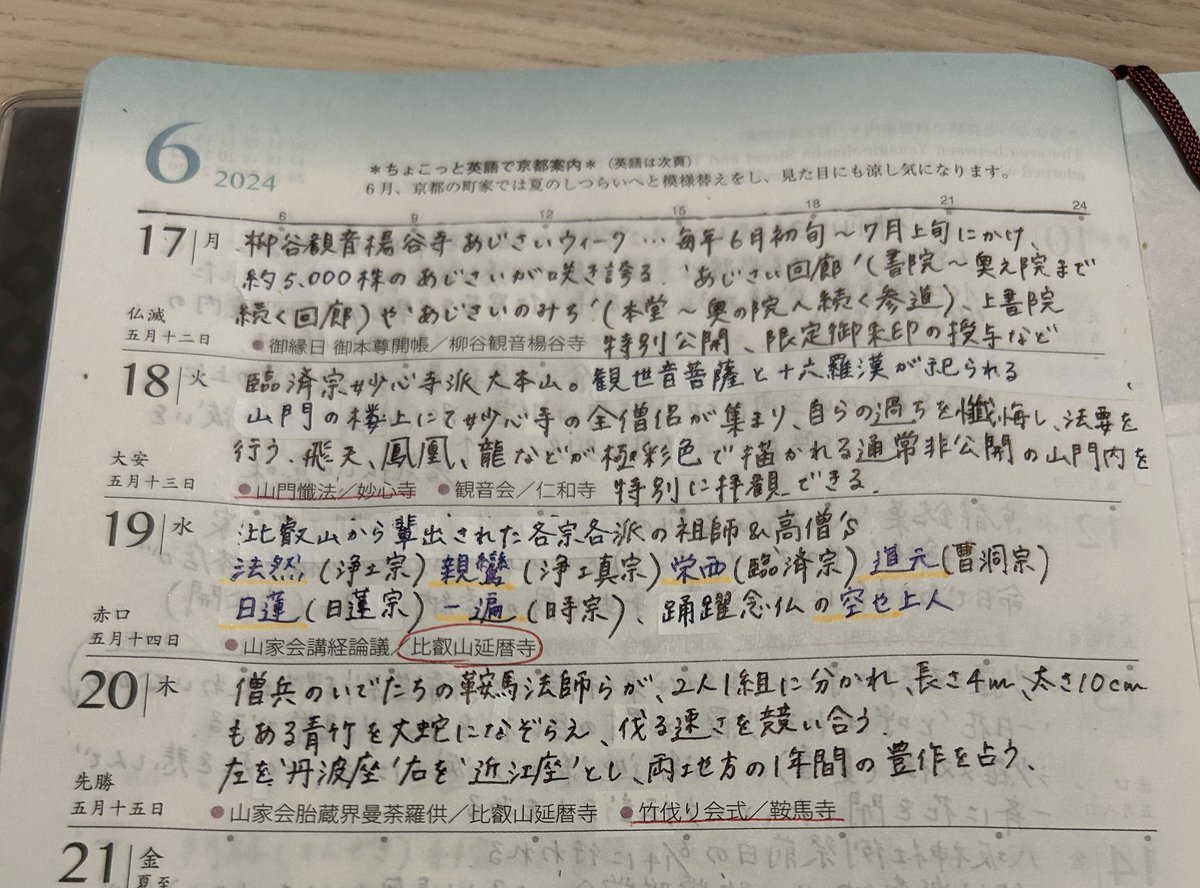 6 2024
＊ちょこっと英語で京都案内＊（英語は次頁）
6月、京都の町家では夏のしつらいへと模様替えをし、見た目にも涼し気になります。
6 9 12 15 18 21 24
17 月 柳谷観音楊谷寺 あじさいウィーク … 毎年6月初旬〜7月上旬にかけ、
約5,000株のあじさいが咲き誇る。'あじさい回廊'（書院〜奥之院まで
続く回廊）や'あじさいのみち'（本堂〜奥の院へ続く参道）、上書院
仏滅
五月十二日 ●御縁日 御本尊開帳／柳谷観音楊谷寺 特別公開、限定御朱印の授与など
18 火 臨済宗妙心寺派大本山。観世音菩薩と十六羅漢が祀られる
山門の楼上にて妙心寺の全僧侶が集まり、自らの過ちを懺悔し、法要を
行う。飛天、鳳凰、龍などが極彩色で描かれる通常非公開の山門内を
大安
五月十三日 ●山門懺法／妙心寺 ●観音会／仁和寺 特別に拝観できる。
19 水 比叡山から輩出された各宗各派の祖師&高僧's
法然（浄土宗）親鸞（浄土真宗）栄西（臨済宗）道元（曹洞宗）
日蓮（日蓮宗）一遍（時宗）、踊躍念仏の空也上人
赤口
五月十四日 ●山家会講経論議／比叡山延暦寺
20 木 僧兵のいでたちの鞍馬法師らが、2人1組に分かれ、長さ4m、太さ10cm
もある青竹を大蛇になぞらえ、伐る速さを競い合う。
左を'丹波座'右を'近江座'とし、両地方の1年間の豊作を占う。
先勝
五月十五日 ●山家会胎蔵界曼荼羅供／比叡山延暦寺 ●竹伐り会式／鞍馬寺
21 金
夏至